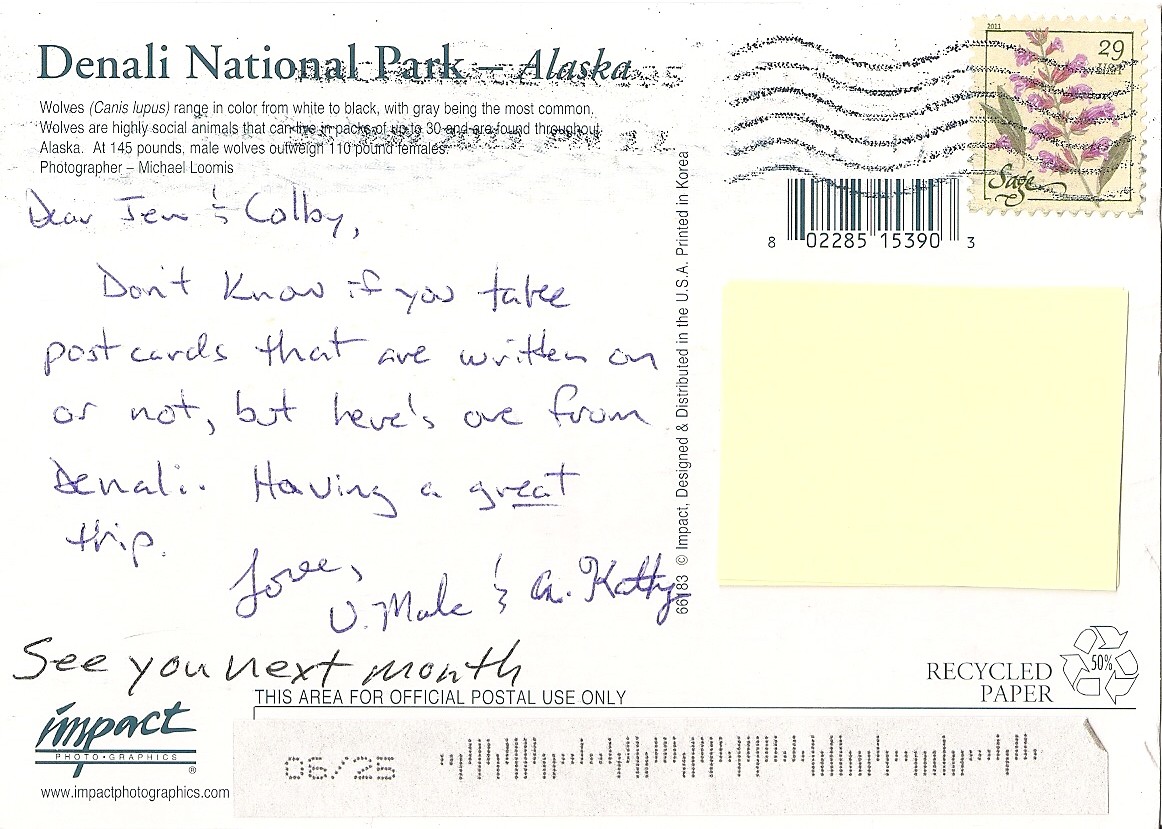 Denali National Park – Alaska
Wolves (Canis lupus) range in color from white to black, with gray being the most common.
Wolves are highly social animals that can live in packs of up to 30 and are found throughout
Alaska. At 145 pounds, male wolves outweigh 110 pound females.
Photographer – Michael Loomis
2011
29
USA
Sage
8 02285 15390 3
Dear Jen & Colby,
Don't know if you take
postcards that are written on
or not, but here's one from
Denali. Having a great
trip.
Love,
U. & A. Kathy
See you next month
66183 © Impact, Designed & Distributed in the U.S.A. Printed in Korea
RECYCLED
PAPER
50%
THIS AREA FOR OFFICIAL POSTAL USE ONLY
impact
PHOTO·GRAPHICS
®
www.impactphotographics.com
06/25